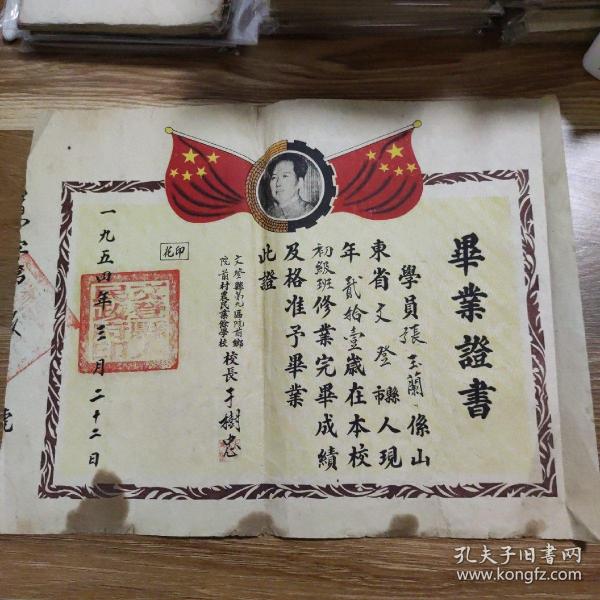 畢業證書
學員張玉蘭係山
東省文登縣市人現
年貳拾壹歲在本校
初級班修業完畢成績
及格准予畢業
此證
文登縣第九區院前鄉
院前村農民業餘學校
校長于樹忠
印花
一九五四年三月二十二日
孔夫子旧书网
www.kongfz.com